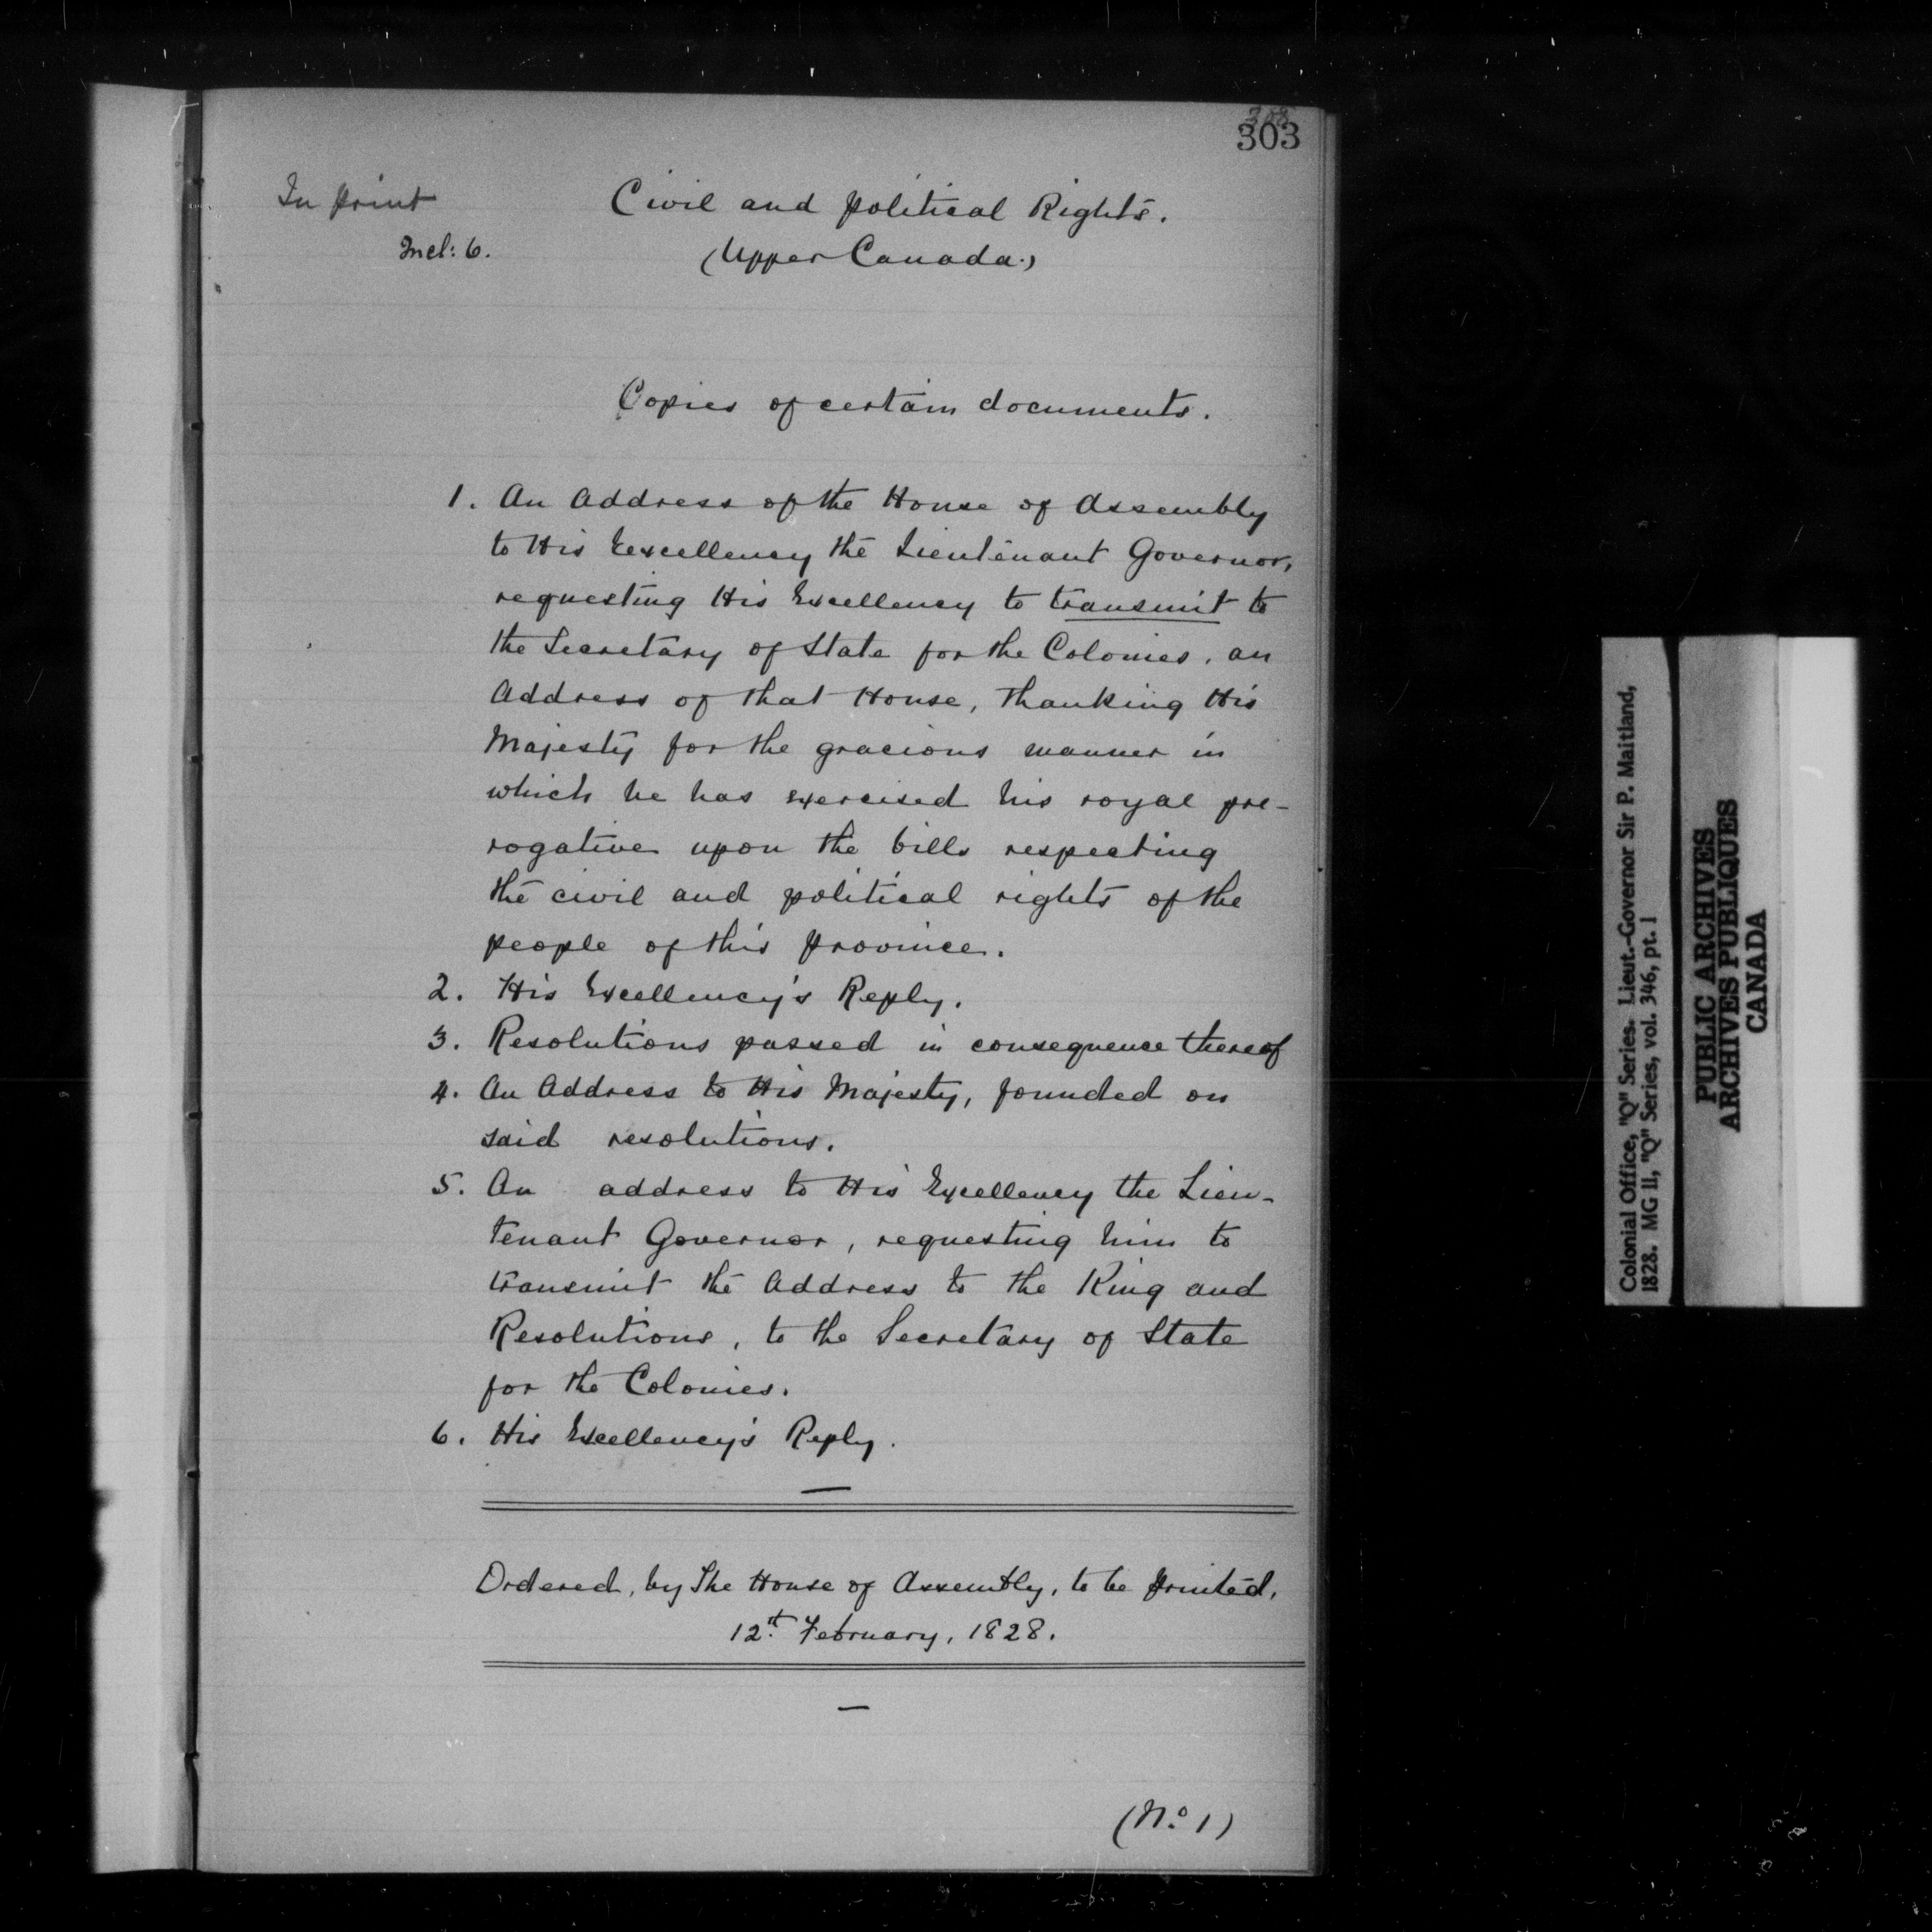 303
In print
Incl: 6.
Civil and political Rights.
(Upper Canada.)
Copies of certain documents.
1. An Address of the House of Assembly
to His Excellency the Lieutenant Governor,
requesting His Excellency to transmit to
the Secretary of State for the Colonies, an
Address of that House, thanking His
Majesty for the gracious manner in
which he has exercised his royal pre-
rogative upon the bills respecting
the civil and political rights of the
people of this province.
2. His Excellency's Reply.
3. Resolutions passed in consequence thereof
4. An Address to His Majesty, founded on
said resolutions.
5. An address to His Excellency the Lieu-
tenant Governor, requesting him to
transmit the Address to the King and
Resolutions, to the Secretary of State
for the Colonies.
6. His Excellency's Reply.
Ordered, by The House of Assembly, to be printed,
12th February, 1828.
(No. 1)
Colonial Office, "Q" Series. Lieut.-Governor Sir P. Maitland,
1828. MG 11, "Q" Series, vol. 346, pt. 1
PUBLIC ARCHIVES
ARCHIVES PUBLIQUES
CANADA